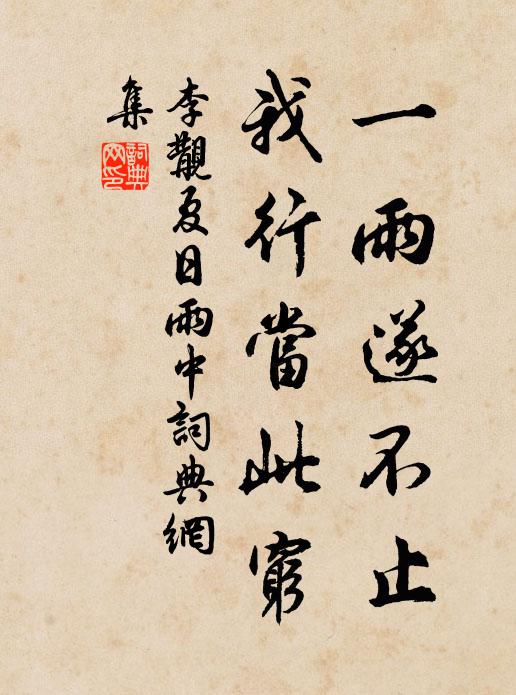 一雨遂不止
我行當此窮
李覯夏日雨中詞典網
集
詞典網印